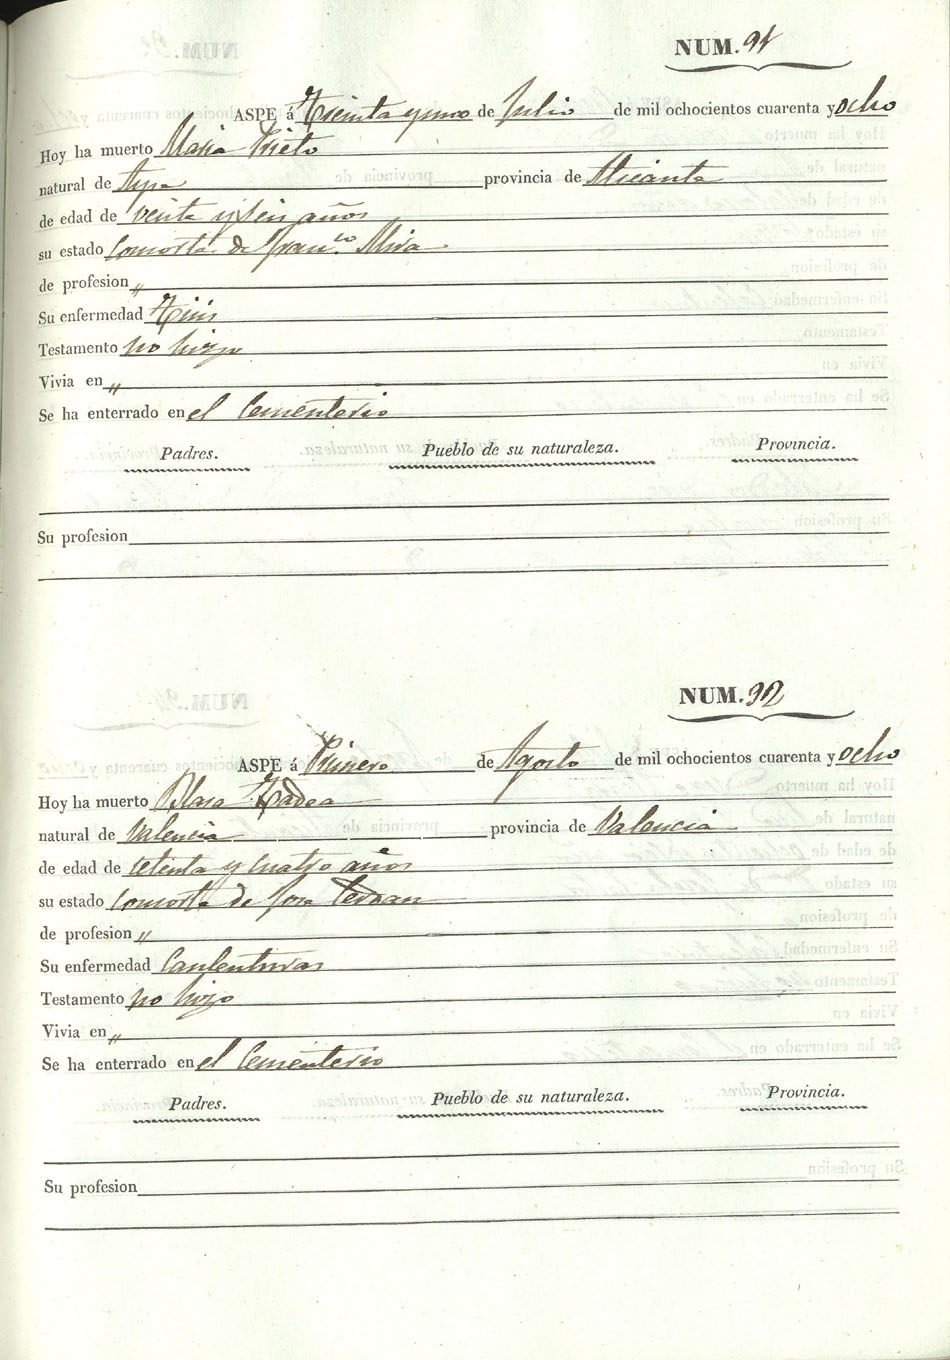 NUM. 91
ASPE á Treinta y uno de Julio de mil ochocientos cuarenta y ocho
Hoy ha muerto Maria Prieto
natural de Aspe provincia de Alicante
de edad de veinte y seis años
su estado consorte de Fran.co Mira
de profesion „
Su enfermedad Tisis
Testamento no hizo
Vivia en „
Se ha enterrado en el Cementerio
Padres. Pueblo de su naturaleza. Provincia.
Su profesion
NUM. 92
ASPE á Primero de Agosto de mil ochocientos cuarenta y ocho
Hoy ha muerto Blasa
natural de Valencia provincia de Valencia
de edad de setenta y cuatro años
su estado consorte de Jose Cerdan
de profesion „
Su enfermedad Calenturas
Testamento no hizo
Vivia en „
Se ha enterrado en el Cementerio
Padres. Pueblo de su naturaleza. Provincia.
Su profesion